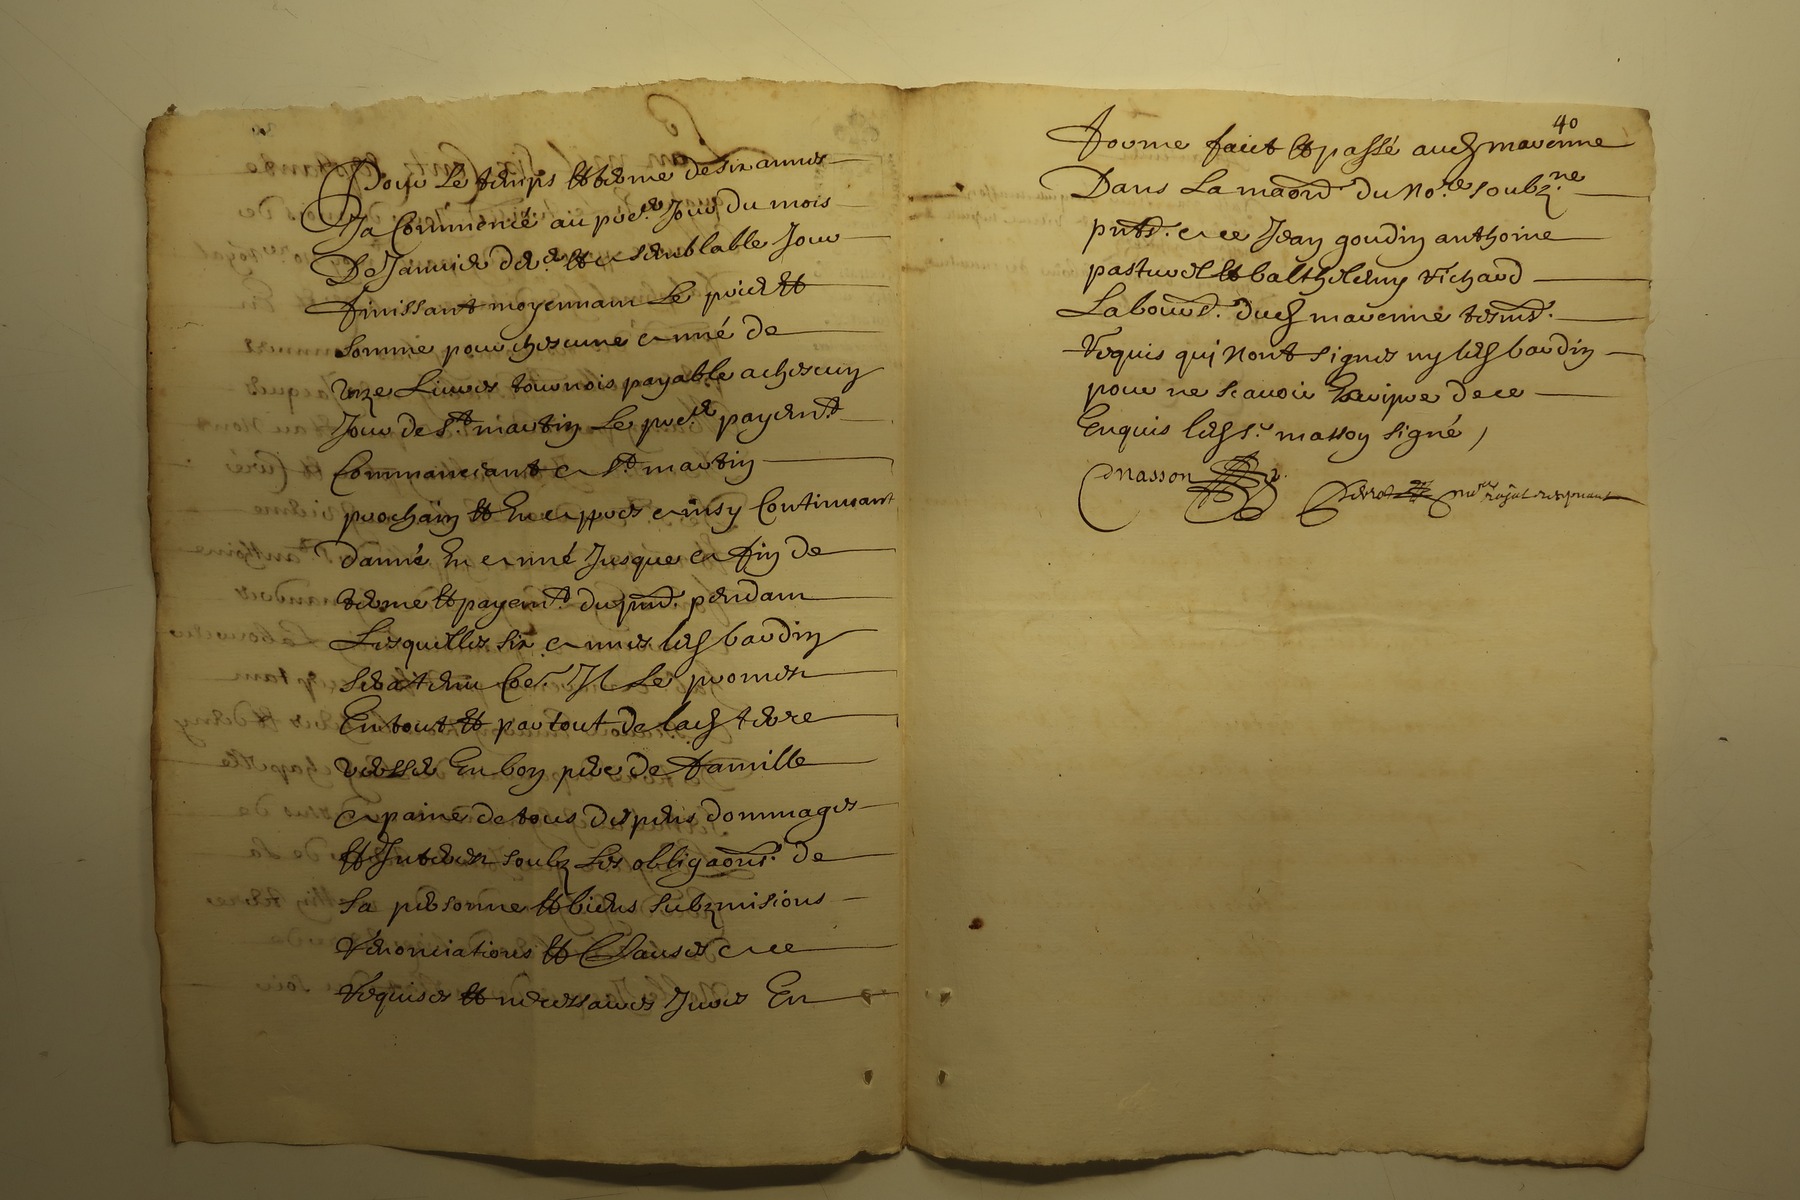 Pour Le temps et terme de six annes
Ja Commencé au pre.er Jour du mois
De Janvier der.er et a semblable Jour
finissant moyennam Le pris et
somme pour chescune anné de
unze Livres tournois payable a chescun
Jour de s.t martin Le pre.er payem.t
Commansant a s.t martin
prochain et En apres ainsy Continuant
danné En anné Jusque a fin de
terme et payem.t du pnt. pendam
Lesquelles six annes led baudin
sera tenu Coe. Il Le promet
En tout et partout de lad terre
verser En bon pere de famille
a paine de tous despens dommages
et Interest soubz Les obligaons. de
sa personne et biens submisions
Renonciations et Clauses a ce
Requises et necessaires Jures En
40
forme faict et passé aud mavenne
Dans La maond du No.re soubz.ne
pnts. a ce Jean goudin anthoine
pasturel et balthelemy Richard
Labours. dud mavenne tesms.
Requis qui Nont signes ny led baudin
pour ne scavoir Escripre de ce
Enquis led s.r masson signé
Masson
no.re royal